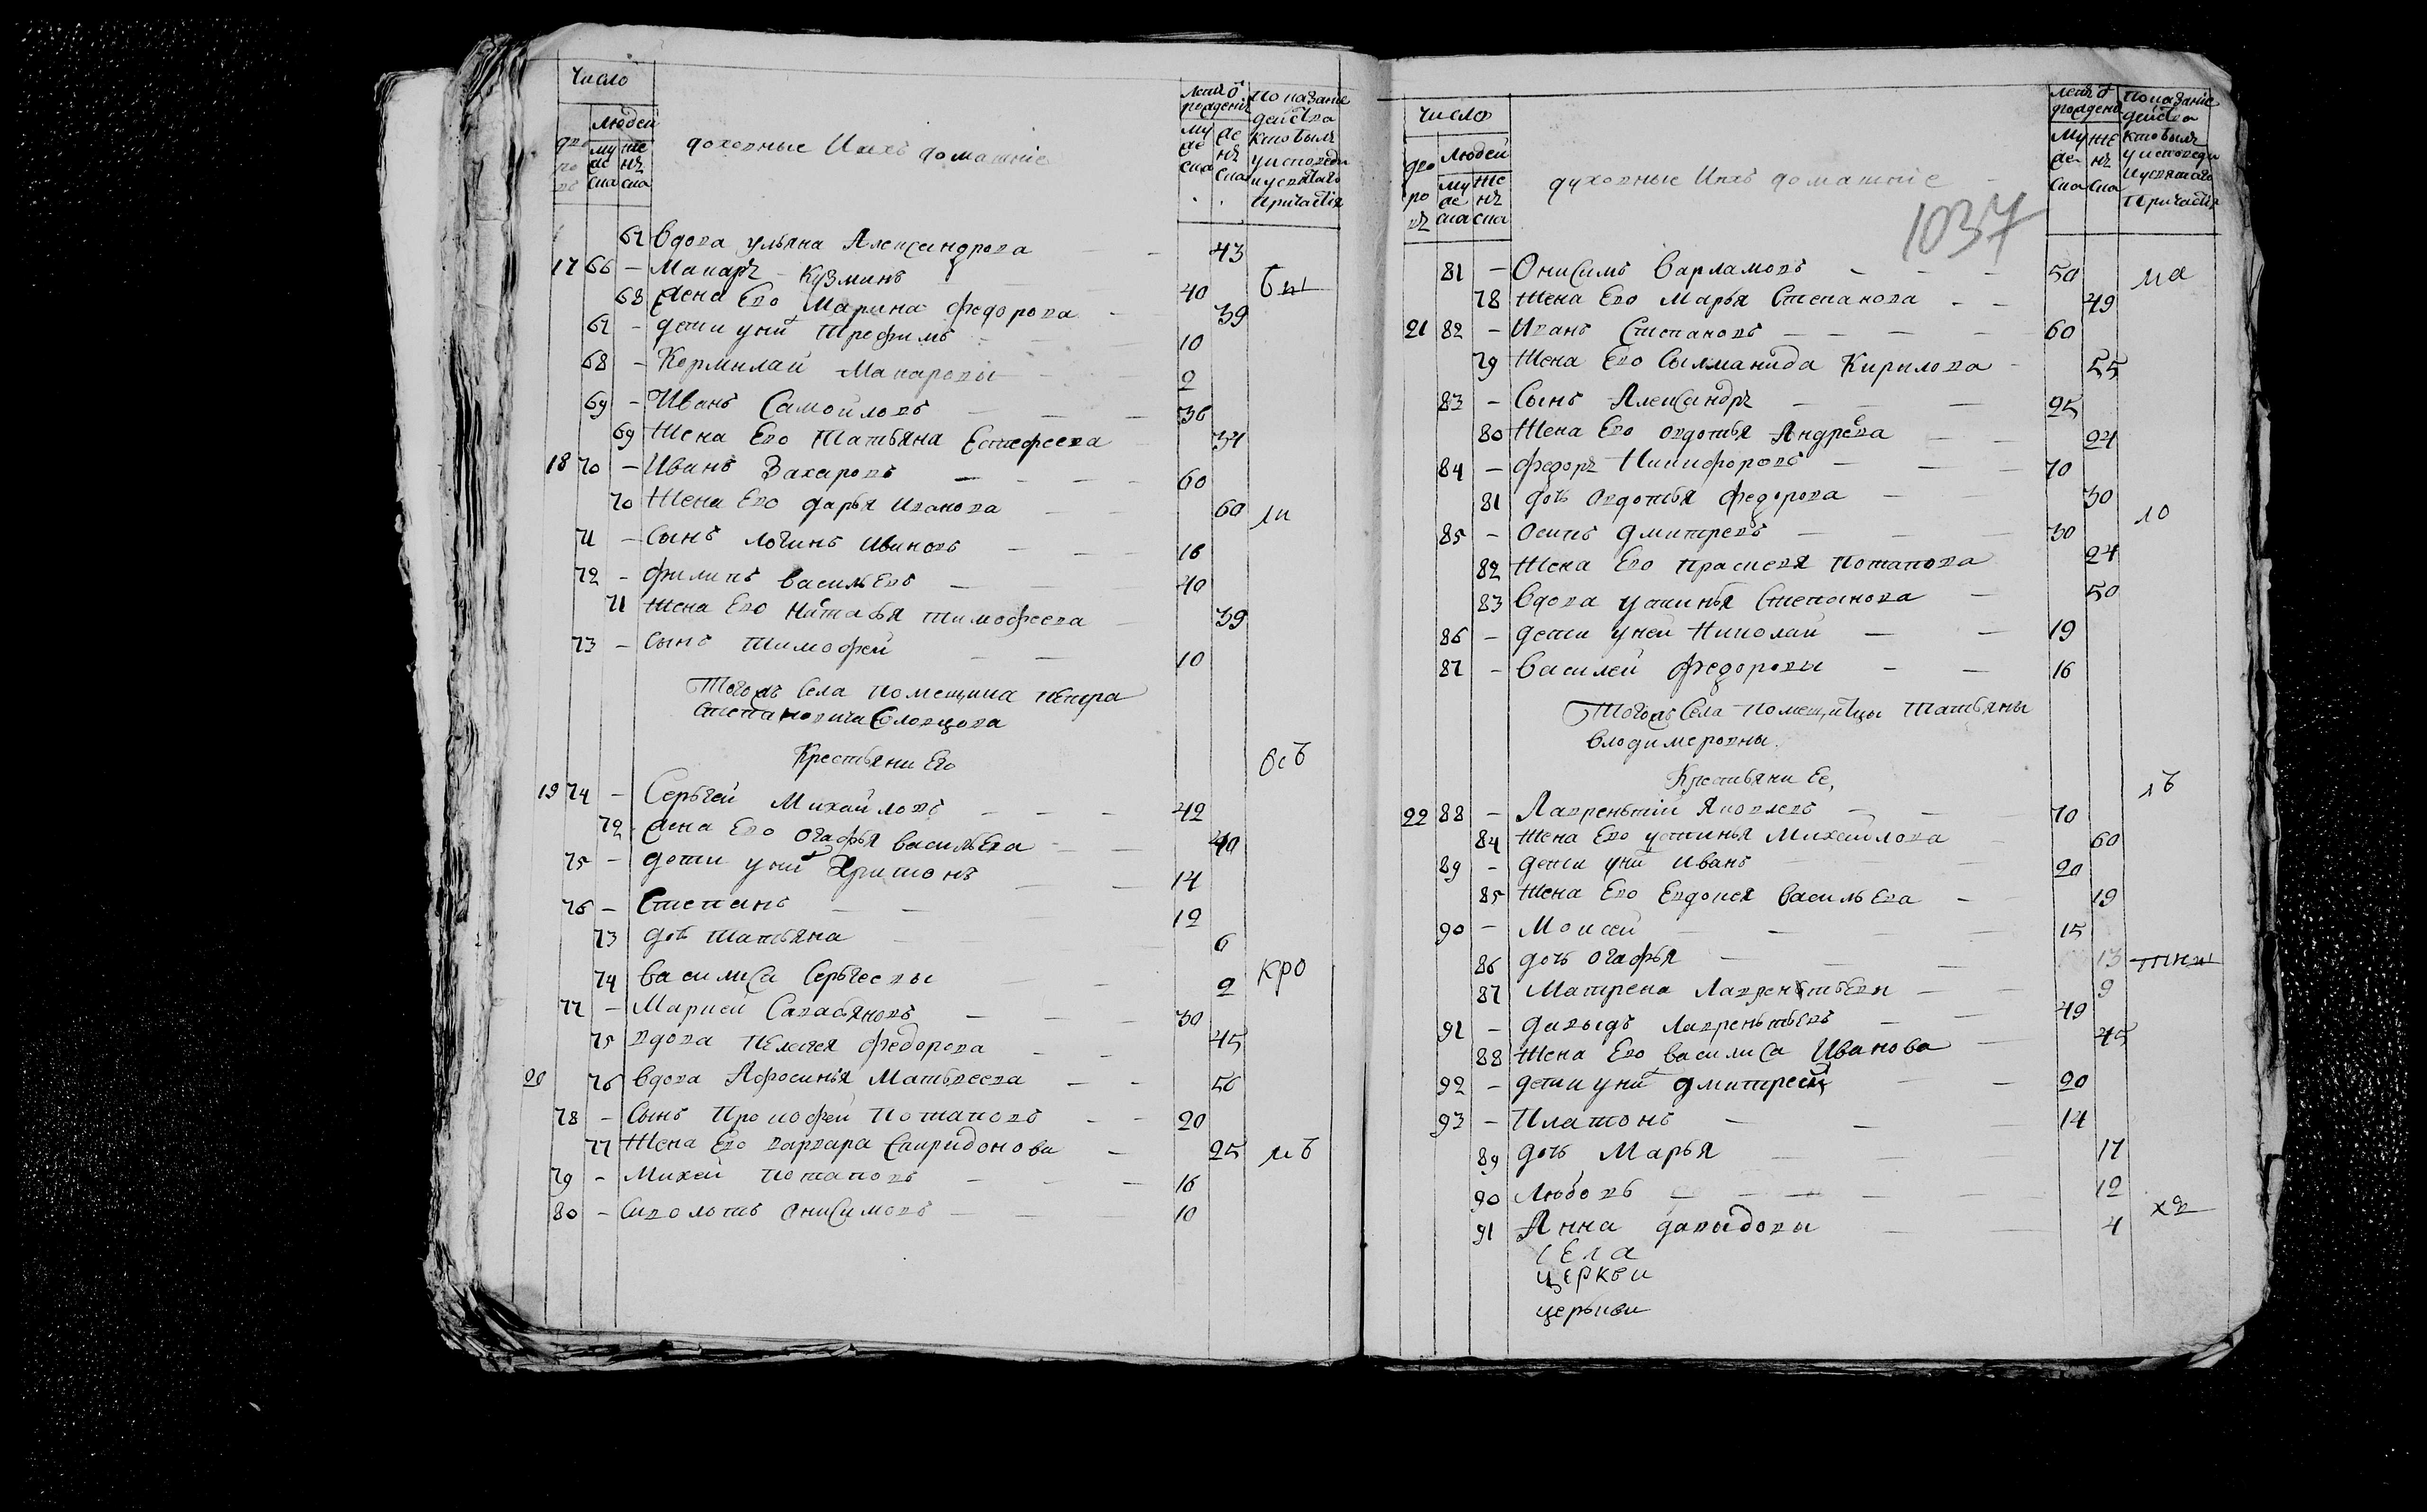 Число
Людей
дворовъ
мужеска
женска
духовные и ихъ домашніе
летъ ѿ рождения
мужеска
женска
показаніе действа кто былъ у исповеди и у святаго причастія
67 Вдова ульяна Александрова — 43
17 66 — Макаръ Кузминъ 40
68 Жена Ево Марина Федорова — 39
67 — дети у нихъ Трефимъ — 10
68 — Кормилай Макаровы 2
69 — Иванъ Самойловъ — — 36
69 Жена Ево Татьяна Естефеева 34
18 70 — Иванъ Захаровъ — — 60
70 Жена Ево дарья Иванова — — 60
71 — Сынъ Логинъ Ивановъ — — 16
72 — Филипъ васильевъ — 40
71 Жена Ево Наталья тимофеева — 39
73 — Сынъ Тимофей — — 10
Тогожъ Села помещика петра
степановича Словцова
Крестьяни Его
19 74 — Сергей Михайловъ — — — 42
72 Жена Ево Огафья васильева — — 40
75 — дети у нихъ Харитонъ — — 14
76 — Степанъ — — 12
73 дочь татьяна — 6
74 василиса Сергеевы — — 2
77 — Маркей Савасьяновъ — — — 30
75 вдова пелагея федорова — — 45
20 76 вдова Афросинья Матвеева — — 56
78 — Сынъ Прокофей Потаповъ — — 20
77 Жена Ево варвара Спиридонова — 25
79 — Михей потаповъ — — — 16
80 — Сиволотъ Онисимовъ — — — 10
ли
всѣ
кро
мѣ
Число
Людей
дворовъ
мужеска
женска
духовные и ихъ домашніе
летъ ѿ рождени
мужеска
женска
показаніе действа кто былъ у исповеди и у святаго причастія
1037
81 — Онисимъ Варламовъ — — — 50
78 Жена Ево Марья Степанова — — 49
21 82 — Иванъ Степановъ — — — — 60
79 Жена Ево Сылманида Кирилова — 55
83 — Сынъ Александръ — — — 25
80 Жена Ево овдотья Андрева — — 24
84 — федоръ Никифоровъ — — — 70
81 дочь Овдотья федорова — 30
85 — осипъ дмитревъ — — — 30
82 Жена Ево праскевя Потапова 24
83 Вдова устинья Степанова — 50
86 — дети у ней Николай — — 19
87 — Василей федоровы — — 16
Тогожъ Села помещицы Татьяны
владимеровны.
Крестьяни Ее,
22 88 — Лаврентий Яковлевъ — — 70
84 Жена Ево устинья Михайлова 60
89 — дети у нихъ Иванъ 20
85 Жена Ево Евдокея Васильева — 19
90 — Моисей — — — 15
86 дочь огафья — — 13
87 Матрена Лаврентьевы — — 9
91 — давыдъ лаврентьевъ — — 49
88 Жена Ево василиса Иванова — 45
92 — дети у нихъ дмитрей — — 20
93 — Платонъ — — 14
89 дочь Марья — — 17
90 Любовь — — — — 12
91 Анна давыдовы — — 4
села
церкви
церькви
ма
ло
лѣ